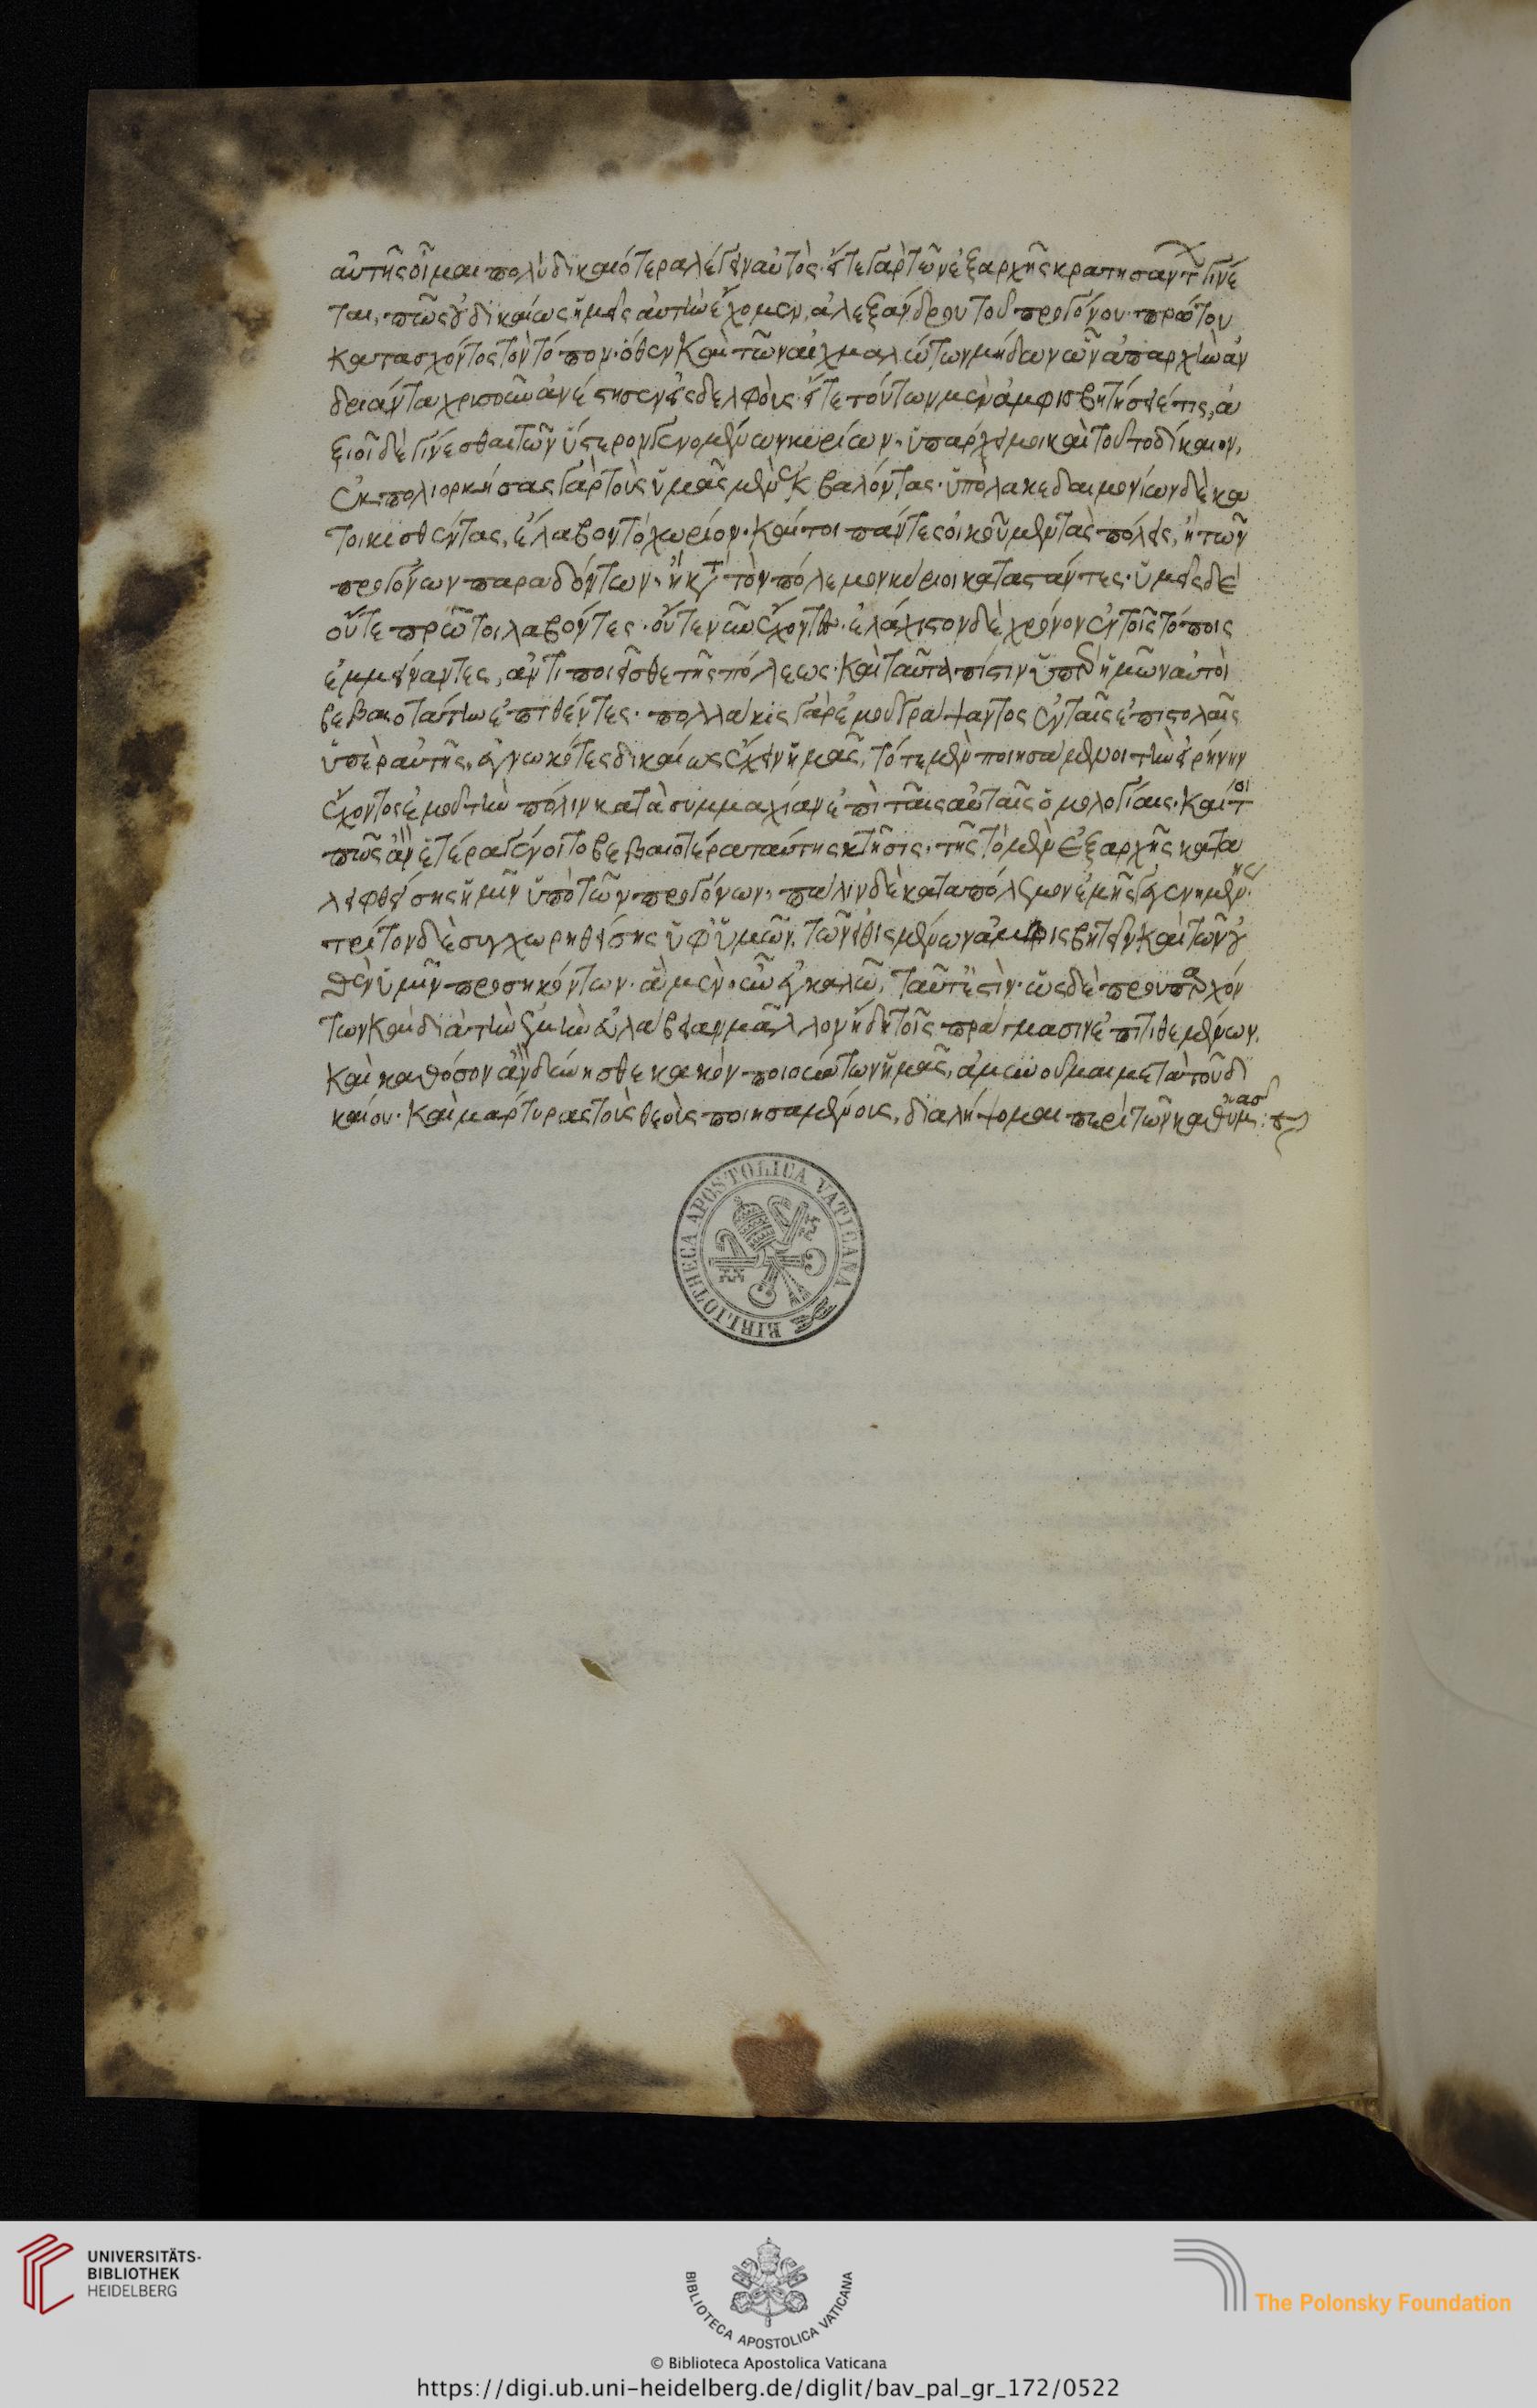 αὐτῆς οἶμαι πολὺ δικαιότερα λέγειν αὐτὸς· εἴτε γὰρ τῶν ἐξ ἀρχῆς κρατησάντ γίνε
ται, πῶς οὐ δικαίως ἡμεῖς αὐτὴν ἔχομεν, ἀλεξάνδρου τοῦ προγόνου πρώτου
κατασχόντος τὸν τόπον· ὅθεν καὶ τῶν αἰχμαλώτων μήδων ὧν ἀπαρχὴν ἀν
δριάντα χρυσοῦν ἀνέστησεν εἰς δελφοὺς· εἴτε τούτων μὲν ἀμφισβητήσειέ τις, ἀ
ξιοῖ δὲ γίνεσθαι τῶν ὕστερον γενομένων κυρίων, ὑπάρχει μοι καὶ τοῦτο δίκαιον,
ἐκπολιορκήσας γὰρ τοὺς ὑμᾶς μὲν ἐκβαλόντας· ὑπὸ λακεδαιμονίων δὲ κα
τοικισθέντας, ἔλαβον τὸ χωρίον. καίτοι πάντες οἰκοῦμεν τὰς πόλεις, ἢ τῶν
προγόνων παραδόντων, ἢ κατὰ τὸν πόλεμον κύριοι καταστάντες· ὑμεῖς δὲ
οὔτε πρῶτοι λαβόντες· οὔτε νῦν ἔχοντες· ἐλάχιστον δὲ χρόνον ἐν τοῖς τόποις
ἐμμείναντες, ἀντιποιεῖσθε τῆς πόλεως· καὶ ταῦτα πίστιν ὑπὲρ ἡμῶν αὐτοὶ
βεβαιοτάτην ἐπιθέντες· πολλάκις γὰρ ἐμοῦ γράψαντος ἐν ταῖς ἐπιστολαῖς
ὑπὲρ αὐτῆς, ἐγνωκότες δικαίως ἔχειν ἡμᾶς, τότε μὲν ποιησάμενοι τὴν εἰρήνην
ἔχοντος ἐμοῦ τὴν πόλιν κατὰ συμμαχίαν ἐπὶ ταῖς αὐταῖς ὁμολογίαις. καίτοι
πῶς ἂν ἑτέρα γένοιτο βεβαιοτέρα ταύτης κτῆσις, τῆς τὸ μὲν ἐξ ἀρχῆς κατα
λειφθείσης ἡμῖν ὑπὸ τῶν προγόνων, πάλιν δὲ κατὰ πόλεμον ἐμῆς γεγενημένης·
τρίτον δὲ συγχωρηθείσης ὑφ' ὑμῶν, τῶν εἰθισμένων ἀμφισβητεῖν καὶ τῶν οὐ
θὲν ὑμῖν προσηκόντων. ἃ μὲν οὖν ἐγκαλῶ, ταῦτ' ἐστίν· ὡς δὲ προϋπαρχόν
των καὶ διὰ τὴν ἐμὴν εὐλάβειαν μᾶλλον ἤδη τοῖς πράγμασιν ἐπιτιθεμένων,
καὶ καθόσον ἂν δύνησθε κακὸν ποιούντων ἡμᾶς, ἀμυνοῦμαι μετὰ τοῦ δι
καίου. καὶ μάρτυρας τοὺς θεοὺς ποιησαμένους, διαλήψομαι περὶ τῶν καθ' ὑμᾶς:
BIBLIOTHECA APOSTOLICA VATICANA
UNIVERSITÄTS-
BIBLIOTHEK
HEIDELBERG
BIBLIOTECA APOSTOLICA VATICANA
The Polonsky Foundation
© Biblioteca Apostolica Vaticana
https://digi.ub.uni-heidelberg.de/diglit/bav_pal_gr_172/0522